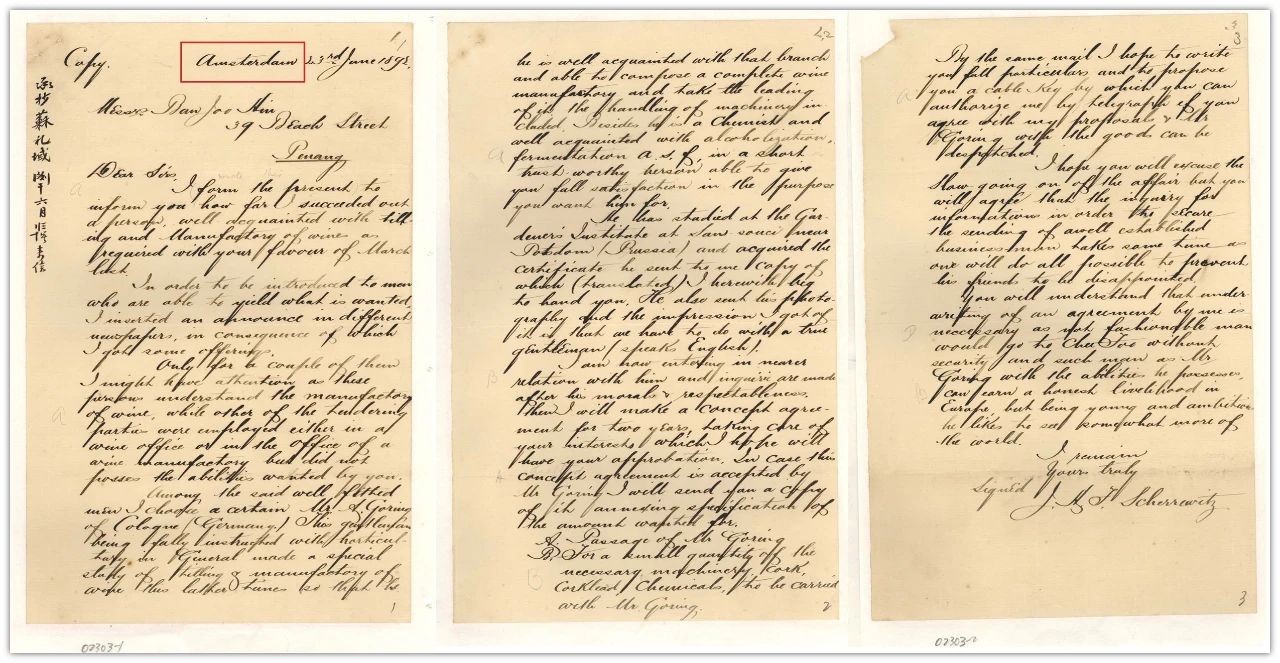 Copy.
Amsterdam 23rd June 1893.
Messrs. Ban Joo Hin
39 Beach Street
Penang
Dear Sirs,
I form the present to
inform you how far I succeeded out
a person, well acquainted with till-
ing and Manufactory of wine as
required with your favour of March
last.
In order to be introduced to men
who are able to yield what is wanted,
I inserted an announce in different
newspapers, in consequence of which
I got some offerings.
Only for a couple of them
I might have attention as these
persons understand the manufactory
of wine, while other of the tendering
parties were employed either in a
wine office or in the office of a
wine manufactory but did not
posses the abilities wanted by you.
Among the said well fitted
men I choose a certain Mr. A. Goring
of Cologne (Germany.) This gentleman
being fully instructed with horticul-
tury in General made a special
study of tilling & manufactory of
wine this latter times so that he
1
02303-1
he is well acquainted with that branch
and able to compose a complete wine
manufactory and take the leading
of it, the handling of machinery in-
cluded. Besides he is a Chemist and
well acquainted with alcoholization,
fermentation a.s.f., in a short
trust-worthy person able to give
you full satisfaction in the purpose
you want him for.
He has studied at the Gar-
dener's Institute at San-souci near
Potsdom (Prussia) and acquired the
certificate he sent to me copy of
which (translated) I herewith beg
to hand you. He also sent his photo-
graphy and the impression I got of
it is that we have to do with a true
gentleman (speaks English).
I am now entering in nearer
relation with him and inquiri are made
after his morals & respectableness.
Then I will make a concept agree-
ment for two years, taking care of
your interests which I hope will
have your approbation. In case this
concept agreement is accepted by
Mr Goring I will send you a copy
of it annexing specification of
the amount wanted for.
A. Passage of Mr Goring
B. For a small quantity of the
necessary machinery Cork,
Corklead, Chemicals, to be carried
with Mr Goring.
2
3
By the same mail I hope to write
you full particulars and to propose
you a cable Key by which you can
authorize me by telegraph if you
agree with my proposals & Mr
Goring with the goods can be
despatched.
I hope you will excuse the
slow going on of the affair but you
will agree that the inquiry for
informations in order the secure
the sending of a well established
business man takes some time as
one will do all possible to prevent
his friends to be disappointed.
You will understand that under-
writing of an agreement by me is
neccessary as not fashionable man
would go to Chee Foo without
security and such man as Mr
Goring with the abilities he possesses,
can earn a honest livelihood in
Europe, but being young and ambitious
he likes to see somewhat more of
the world.
I remain
Yours truly
Signed J. A. F. Scherrewitz
3
02303-2